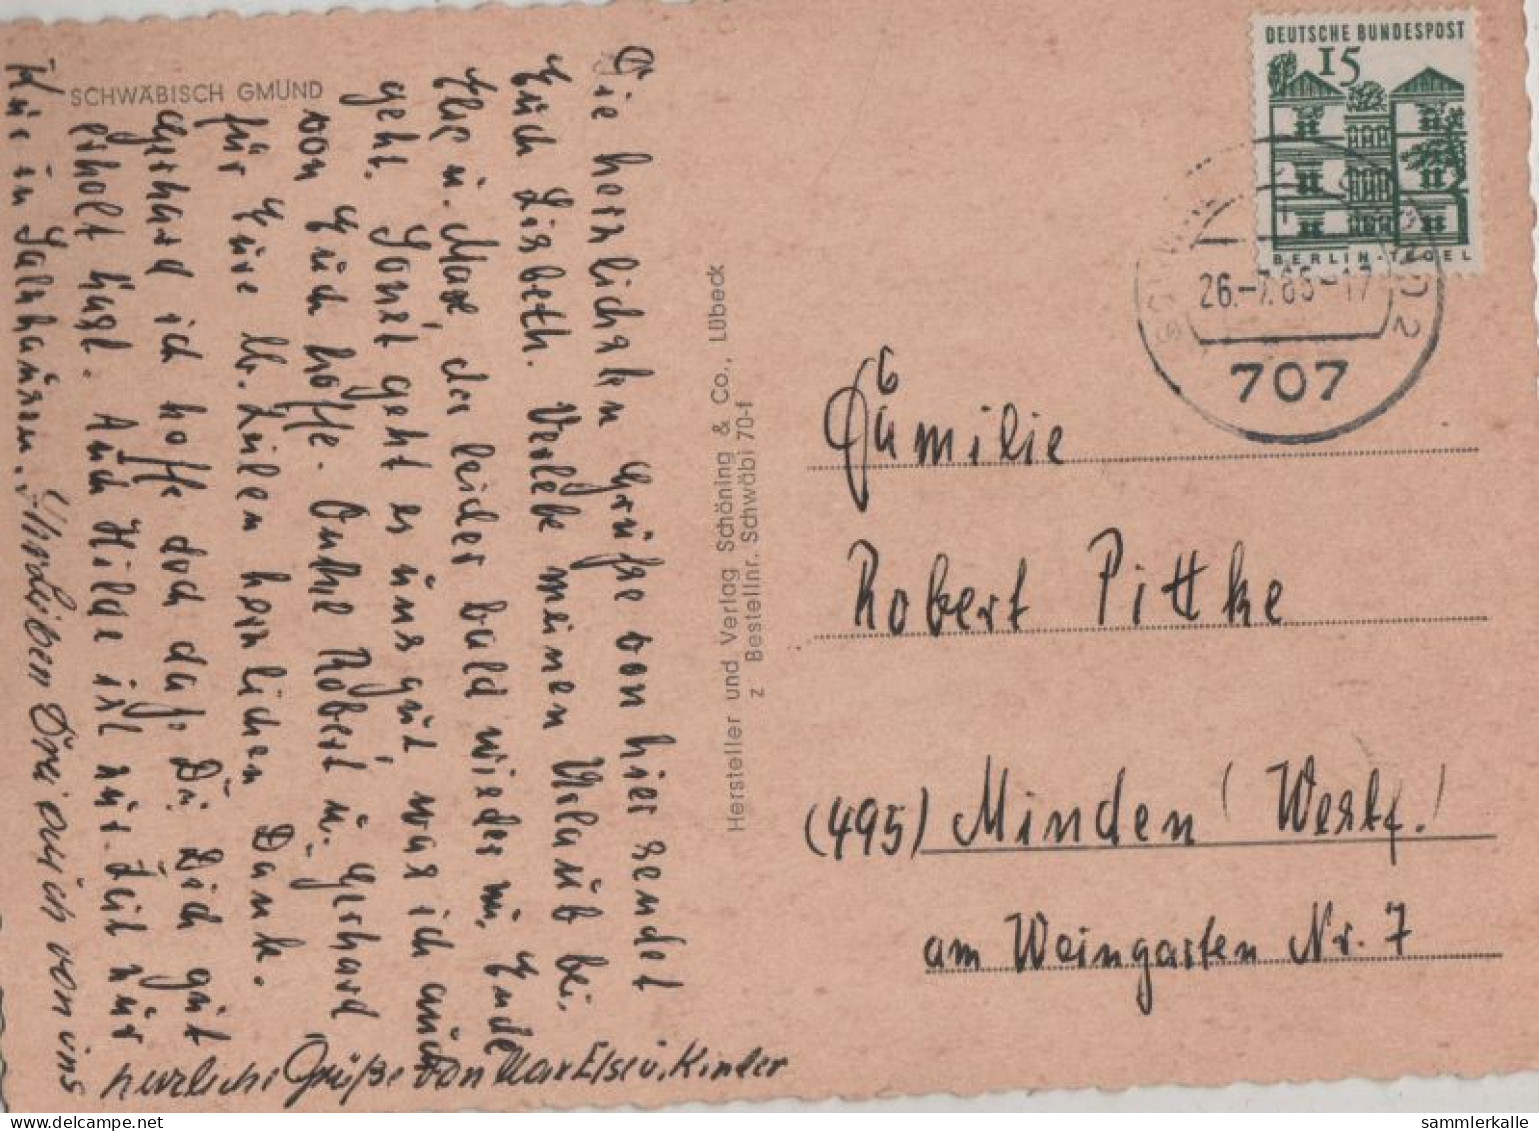 SCHWÄBISCH GMÜND
Die herzlichsten Grüße von hier sendet
Euch Lisbeth. Verlebe meinen Urlaub bei
Else u. Max, der leider bald wieder zu Ende
geht. Sonst geht es uns gut, was ich auch
von Euch hoffe. Onkel Robert u. Gerhard
für Eure lb. Zeilen herzlichen Dank.
Gerhard ich hoffe doch daß Du Dich gut
erholt hast. Auch Hilde ist zur Zeit zur
Kur in Salzhausen.
Ihr Lieben Drei auch von uns
herzliche Grüße von Max Else u. Kinder
Hersteller und Verlag Schöning & Co., Lübeck
z Bestellnr. Schwäbi 70-f
DEUTSCHE BUNDESPOST
15
BERLIN-TEGEL
26.-7.65-17
707
Familie
Robert Pittke
(495) Minden (Westf.)
am Weingarten Nr. 7
sammlerkalle
www.delcampe.net